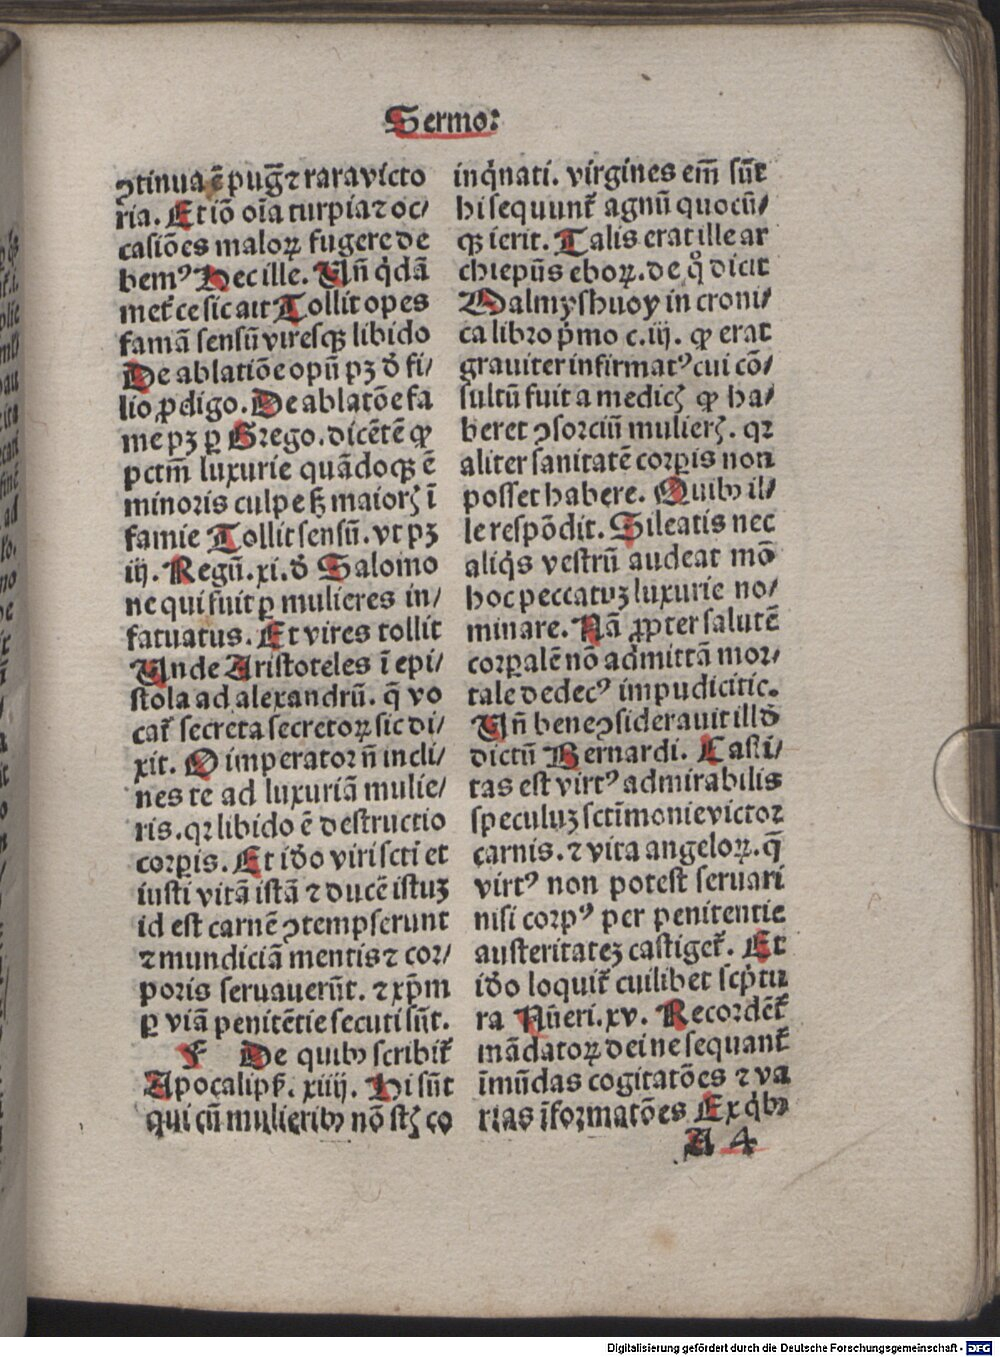 Sermo:
ꝯtinua ē puḡ ⁊ rara victo
ria. Et iō oīa turpia ⁊ oc/
casiōes maloꝝ fugere de
bemꝰ Hec ille. Uñ q̇dā
met̄ce sic ait Tollit opes
famā sensū viresqꝫ libido
De ablatiōe opū pꝫ ð fi/
lio ꝓdigo. De ablatōe fa
me pꝫ ꝑ Grego. dicētē ꝙ
pctm̄ luxurie quādoqꝫ ē
minoris culpe sꝫ maiorꝭ ī
famie Tollit sensū. vt pꝫ
iij. Regū. xi. ð Salomo
ne qui fuit ꝑ mulieres in/
fatuatus. Et vires tollit
Unde Aristoteles ī epi/
stola ad alexandrū. q̄ vo
cat̄ secreta secretoꝝ sic di/
xit. O imperator ñ incli/
nes te ad luxuriā mulie/
ris. qꝛ libido ē destructio
corꝑis. Et iðo viri scti et
iusti vitā istā ⁊ ducē istuꝫ
id est carnē ꝯtempserunt
⁊ mundiciā mentis ⁊ cor/
poris seruauerūt. ⁊ xp̄m
ꝑ viā penitētie secuti sūt.
F De quibꝰ scribit̄
Apocalipẜ. xiiij. Hi sūt
qui cū mulieribꝰ nō stꝭ co
inq̇nati. virgines em̄ sūt
hi sequunt̄ agnū quocū/
qꝫ ierit. Talis erat ille ar
chiepūs eboꝝ. de qͦ dicit
Dalmyshuoy in croni/
ca libro pͥmo c. iij. ꝙ erat
grauiter infirmatꝰ cui cō/
sultū fuit a medicꝭ ꝙ ha/
beret ꝯsorciū mulierꝭ. qꝛ
aliter sanitatē corꝑis non
posset habere. Quibꝰ il/
le respōdit. Sileatis nec
aliq̇s vestrū audeat mō
hoc peccatuꝫ luxurie no/
minare. Nā ꝓpter salutē
corꝑalē nō admittā mor/
tale dedecꝰ impudicitie.
Uñ bene ꝯsiderauit illð
dictū Bernardi. Casti/
tas est virtꝰ admirabilis
speculuꝫ sctīmonie victor
carnis. ⁊ vita angeloꝝ. q̄
virtꝰ non potest seruari
nisi corpꝰ per penitentie
austeritateꝫ castiget̄. Et
iðo loquit̄ cuilibet scpͥtu
ra Nūeri. xv. Recordēt̄
mādatoꝝ dei ne sequant̄
īmūdas cogitatōes ⁊ va
rias īformatōes Ex q̇bꝰ
A 4
Digitalisierung gefördert durch die Deutsche Forschungsgemeinschaft - DFG